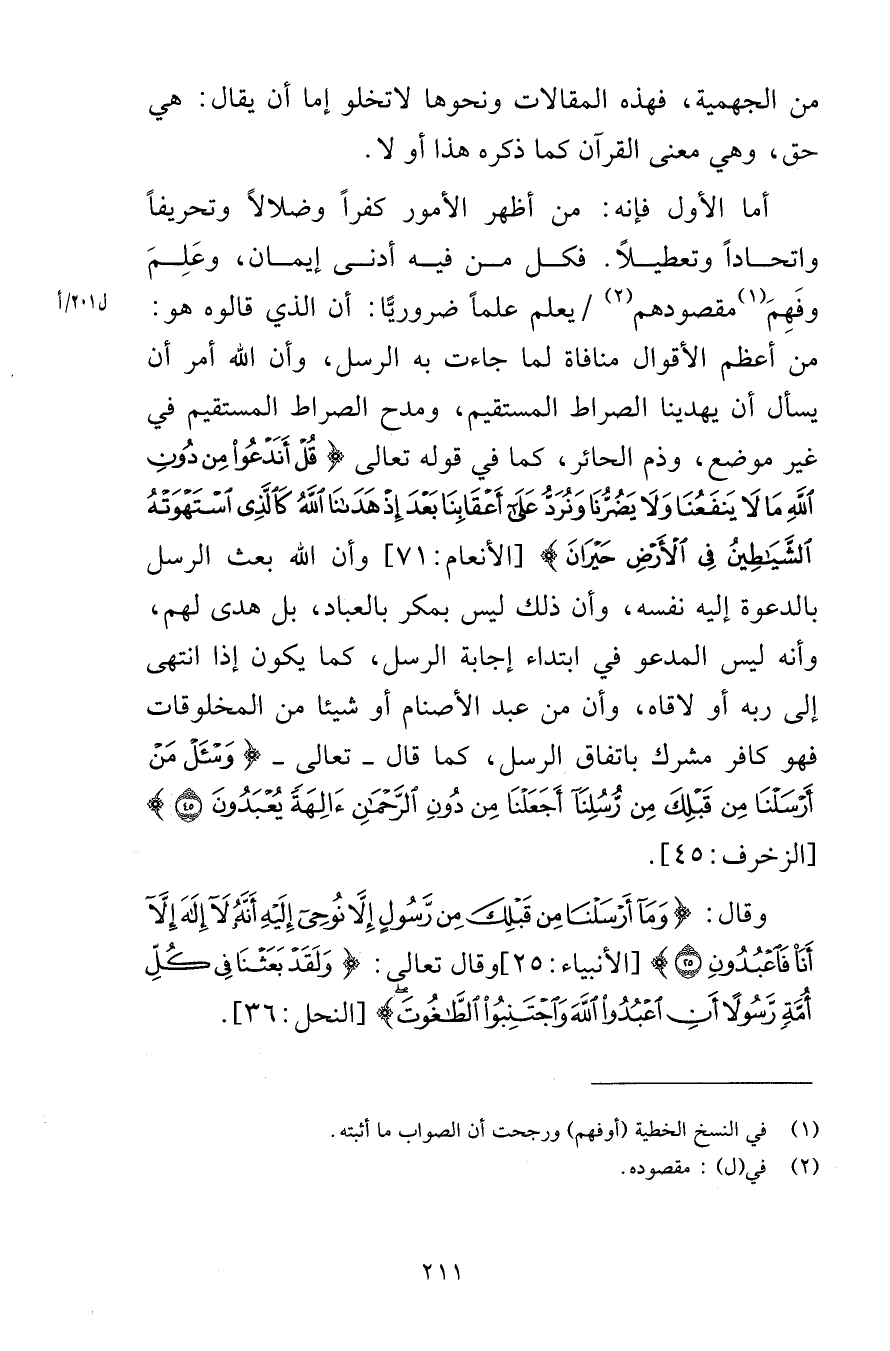 من الجهمية، فهذه المقالات ونحوها لاتخلو إما أن يقال: هي
حق، وهي معنى القرآن كما ذكره هذا أو لا.
أما الأول فإنه: من أظهر الأمور كفراً وضلالاً وتحريفاً
واتحـاداً وتعطيـلاً. فكـل مـن فيـه أدنـى إيمـان، وعَلِـمَ
وفَهِمَ(١)مقصودهم(٢) /يعلم علماً ضروريًّا: أن الذي قالوه هو: ل٢٠١/أ
من أعظم الأقوال منافاة لما جاءت به الرسل، وأن الله أمر أن
يسأل أن يهدينا الصراط المستقيم، ومدح الصراط المستقيم في
غير موضع، وذم الحائر، كما في قوله تعالى ﴿ قُلْ أَنَدْعُوا۟ مِن دُونِ
ٱللَّهِ مَا لَا يَنفَعُنَا وَلَا يَضُرُّنَا وَنُرَدُّ عَلَىٰٓ أَعْقَابِنَا بَعْدَ إِذْ هَدَىٰنَا ٱللَّهُ كَٱلَّذِى ٱسْتَهْوَتْهُ
ٱلشَّيَٰطِينُ فِى ٱلْأَرْضِ حَيْرَانَ ﴾ [الأنعام: ٧١] وأن الله بعث الرسل
بالدعوة إليه نفسه، وأن ذلك ليس بمكر بالعباد، بل هدى لهم،
وأنه ليس المدعو في ابتداء إجابة الرسل، كما يكون إذا انتهى
إلى ربه أو لاقاه، وأن من عبد الأصنام أو شيئا من المخلوقات
فهو كافر مشرك باتفاق الرسل، كما قال ـ تعالى ـ ﴿ وَسْـَٔلْ مَنْ
أَرْسَلْنَا مِن قَبْلِكَ مِن رُّسُلِنَآ أَجَعَلْنَا مِن دُونِ ٱلرَّحْمَٰنِ ءَالِهَةً يُعْبَدُونَ ۝٤٥ ﴾
[الزخرف: ٤٥].
وقال: ﴿ وَمَآ أَرْسَلْنَا مِن قَبْلِكَ مِن رَّسُولٍ إِلَّا نُوحِىٓ إِلَيْهِ أَنَّهُۥ لَآ إِلَٰهَ إِلَّآ
أَنَا۠ فَٱعْبُدُونِ ۝٢٥ ﴾ [الأنبياء: ٢٥]وقال تعالى: ﴿ وَلَقَدْ بَعَثْنَا فِى كُلِّ
أُمَّةٍ رَّسُولًا أَنِ ٱعْبُدُوا۟ ٱللَّهَ وَٱجْتَنِبُوا۟ ٱلطَّٰغُوتَۖ ﴾ [النحل: ٣٦].
(١) في النسخ الخطية (أوفهم) ورجحت أن الصواب ما أثبته.
(٢) في(ل) : مقصوده.
٢١١